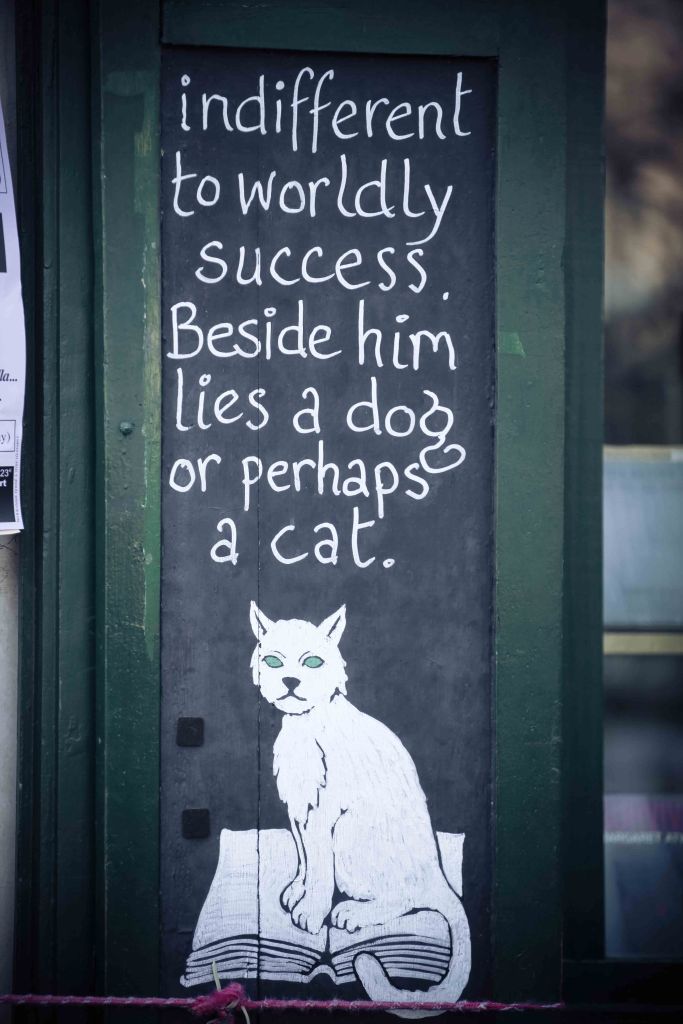 indifferent
to worldly
success.
Beside him
lies a dog
or perhaps
a cat.
la...
y)
23
rt
MARGARET AT